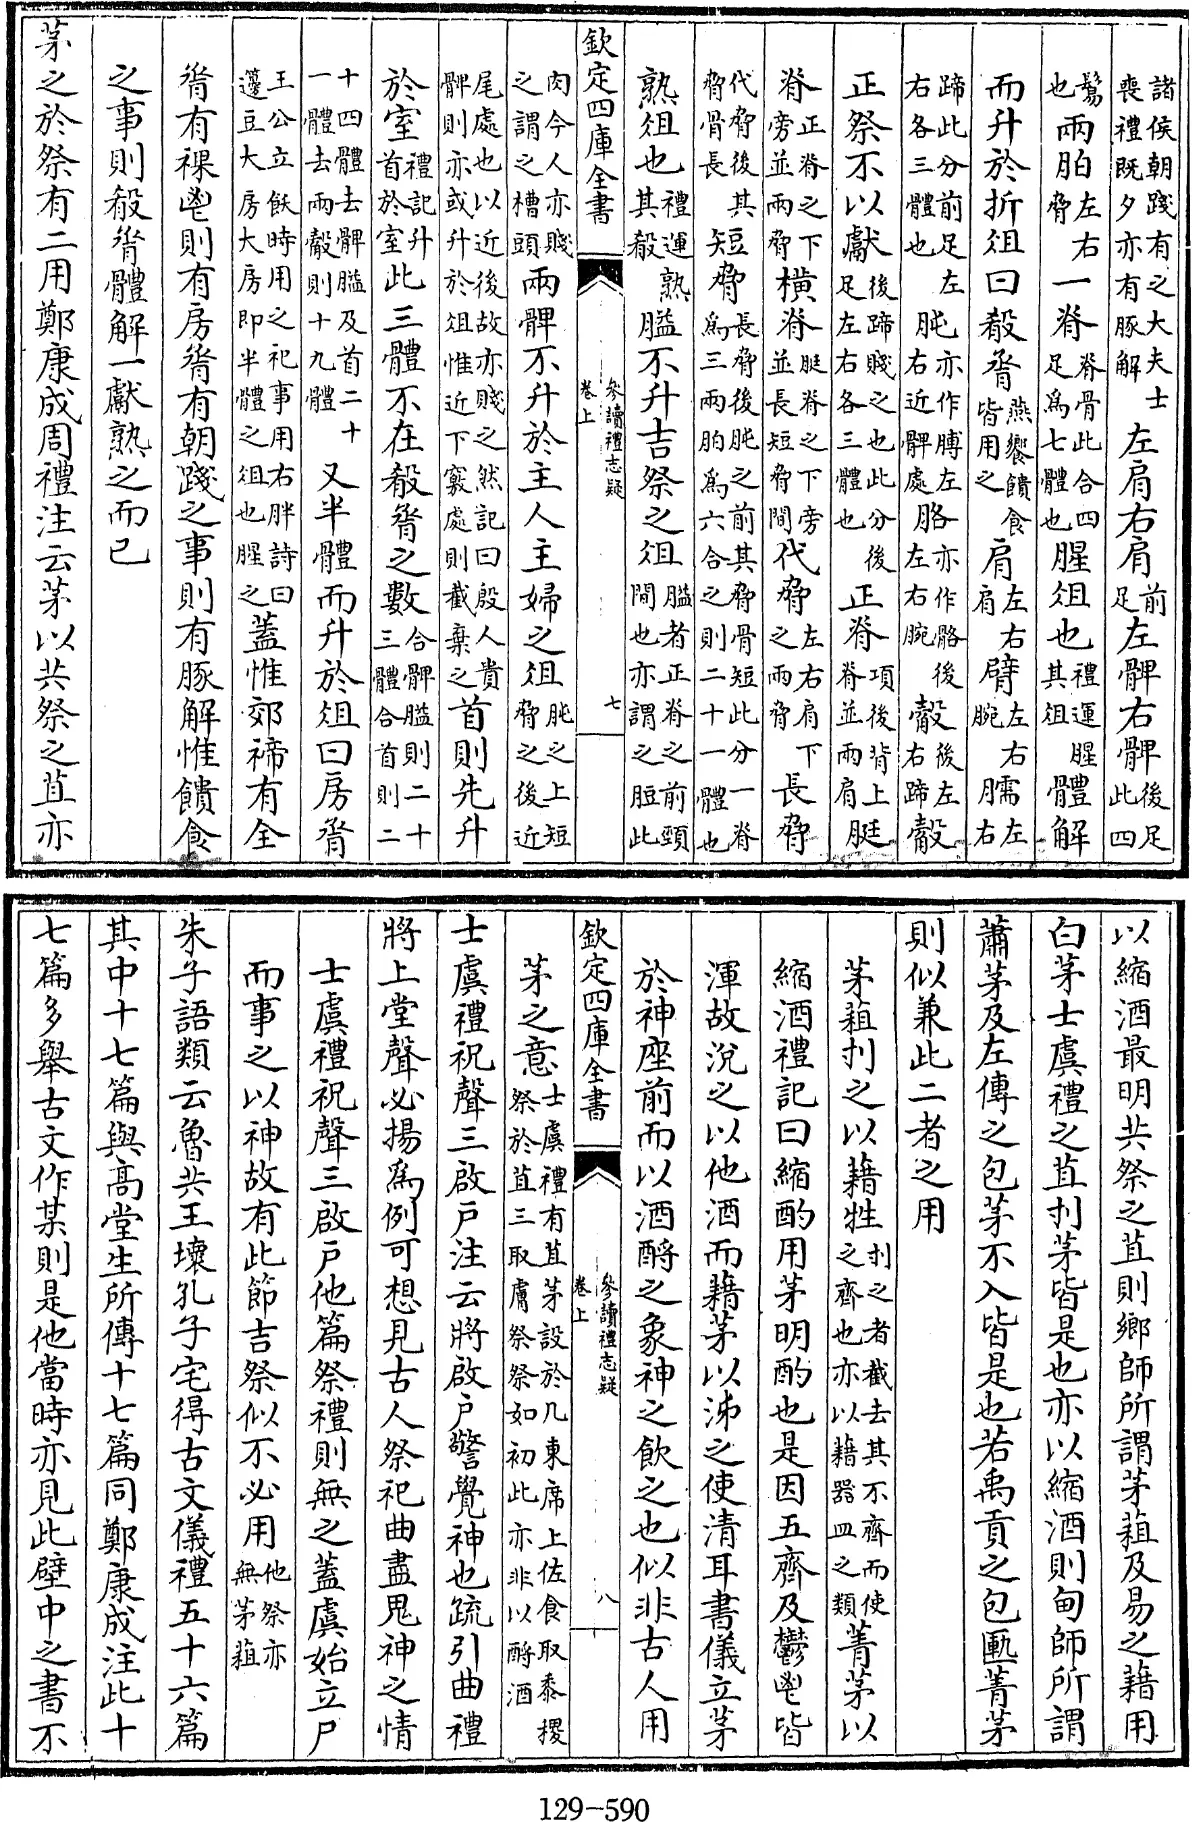 諸侯朝踐有之大夫士喪禮既夕亦有豚解左肩右肩前足左髀右髀後足此四
鬄也兩胉左右脅一脊脊骨此合四足為七體也腥俎也禮運腥其俎體解
而升於折俎曰殽脀燕饗饋食皆用之肩左右肩臂左右腕臑左右
蹄此分前足左右各三體也肫亦作膊左右近髀處胳亦作骼後左右腕觳後左右蹄觳
正祭不以獻後蹄賤之也此分後足左右各三體也正脊項後背上脊並兩肩脡
脊正脊之下脊旁並兩脅橫脊脡脊之下旁並長短脅間代脅左右肩下之兩脅長脅
代脅後其脅骨長短脅長脅後肫之前其脅骨短此分一脊為三兩胉為六合之則二十一體也
熟俎也禮運熟其殽膉不升吉祭之俎膉者正脊之前頸間也亦謂之脰此
欽定四庫全書
參讀禮志疑
卷上
七
肉今人亦賤之謂之槽頭兩髀不升於主人主婦之俎肫之上短脅之後近
尾處也以近後故亦賤之然記曰殷人貴髀則亦或升於俎惟近下竅處則截棄之首則先升
於室禮記升首於室此三體不在殽脀之數合髀膉則二十三體合首則二
十四體去髀膉及首二十一體去兩觳則十九體又半體而升於俎曰房脀
王公立飫時用之祀事用右胖詩曰籩豆大房大房即半體之俎也腥之蓋惟郊禘有全
脀有祼鬯則有房脀有朝踐之事則有豚解惟饋食
之事則殽脀體解一獻熟之而已
茅之於祭有二用鄭康成周禮注云茅以共祭之苴亦
以縮酒最明共祭之苴則鄉師所謂茅蒩及易之藉用
白茅士虞禮之苴刌茅皆是也亦以縮酒則甸師所謂
蕭茅及左傳之包茅不入皆是也若禹貢之包匭菁茅
則似兼此二者之用
茅蒩刌之以藉牲刌之者截去其不齊而使之齊也亦以藉器皿之類菁茅以
縮酒禮記曰縮酌用茅明酌也是因五齊及鬱鬯皆
渾故沒之以他酒而藉茅以泲之使清耳書儀立茅
於神座前而以酒酹之象神之飲之也似非古人用
欽定四庫全書
參讀禮志疑
卷上
八
茅之意士虞禮有苴茅設於几東席上佐食取黍稷祭於苴三取膚祭祭如初此亦非以酹酒
士虞禮祝聲三啟戶注云將啟戶警覺神也疏引曲禮
將上堂聲必揚為例可想見古人祭祀曲盡鬼神之情
士虞禮祝聲三啟戶他篇祭禮則無之蓋虞始立尸
而事之以神故有此節吉祭似不必用他祭亦無茅蒩
朱子語類云魯共王壞孔子宅得古文儀禮五十六篇
其中十七篇與高堂生所傳十七篇同鄭康成注此十
七篇多舉古文作某則是他當時亦見此壁中之書不
129-590